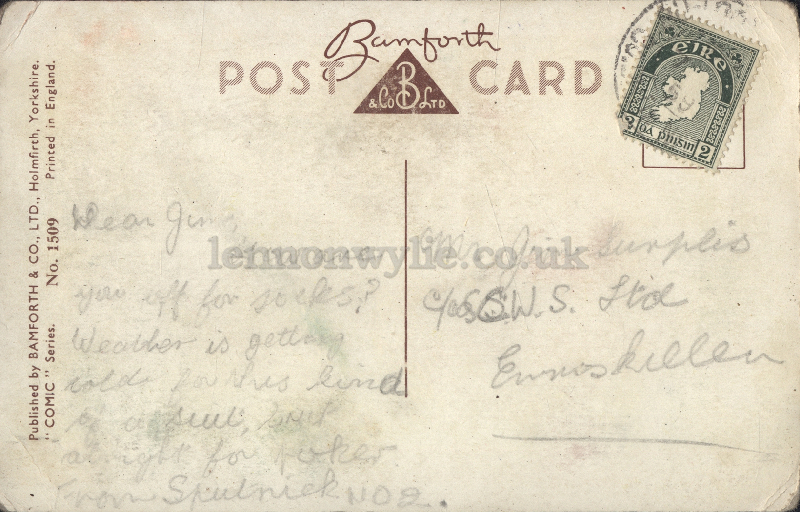 Bamforth
POST CARD
B
& Co LTD
éire
2 pinsin 2
Published by BAMFORTH & CO., LTD., Holmfirth, Yorkshire.
"COMIC" Series. No. 1509 Printed in England.
lennonwylie.co.uk
Dear Jim,
you off for socks?
Weather is getting
cold for this kind
of a suit, but
alright for poker
From Sputnick NO2.
Mr Jim Surplis
c/o S.W.S. Ltd
Enniskillen